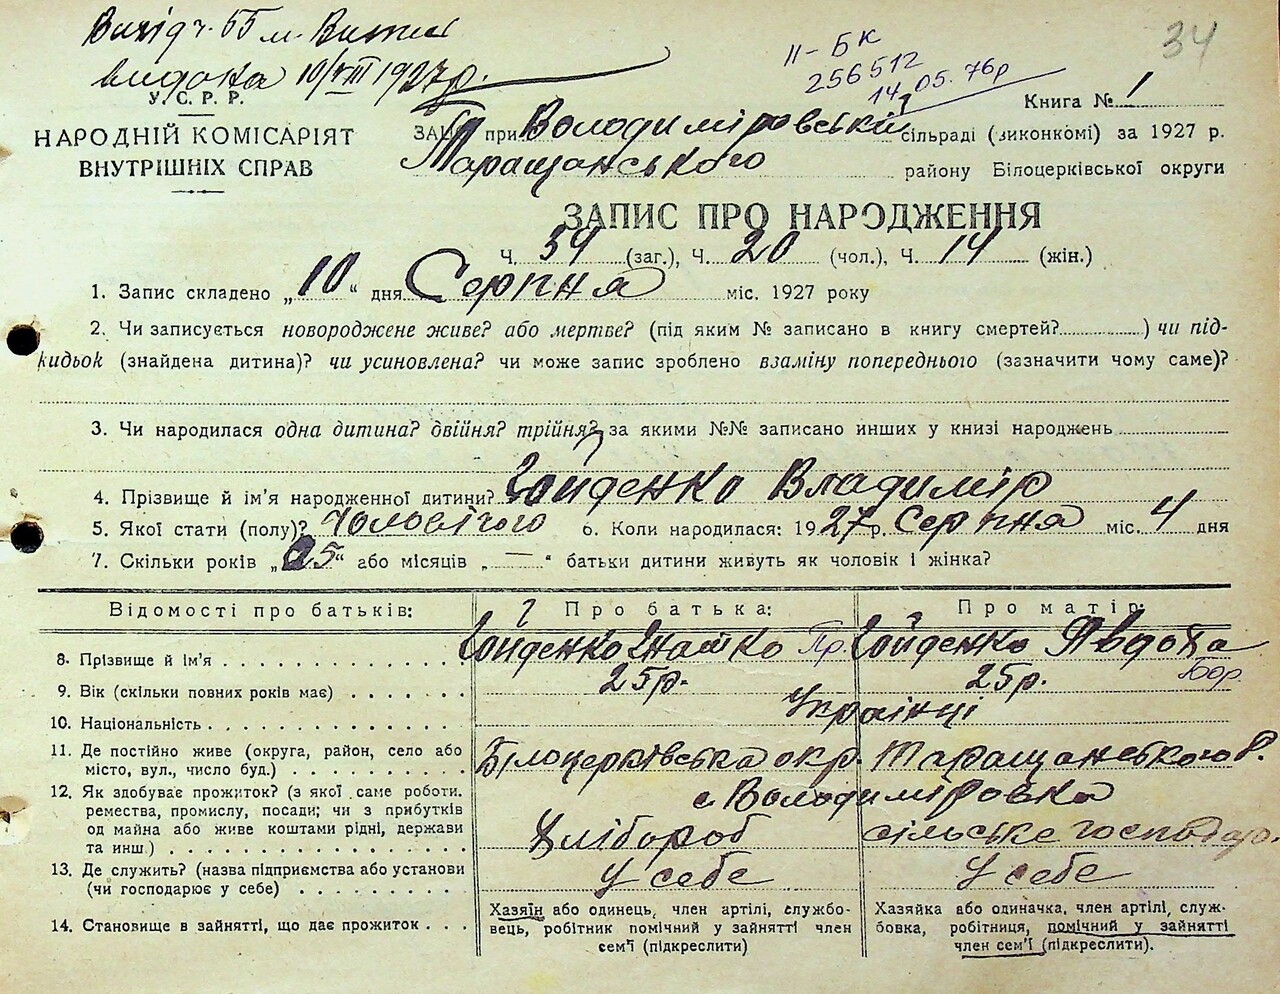 Вихід ч. 55 м. Витяг
видана 10/VIII 1927р.
34
II-БК
256512
14.05.76р
У.С.Р.Р.
НАРОДНІЙ КОМІСАРІЯТ
ВНУТРІШНІХ СПРАВ
Книга № 1
ЗАГС при Володимирівській сільраді (виконкомі) за 1927 р.
Таращанського району Білоцерківської округи
ЗАПИС ПРО НАРОДЖЕННЯ
Ч. 34 (заг.), Ч. 20 (чол.), Ч. 14 (жін.)
1. Запис складено „10“ дня Серпня міс. 1927 року
2. Чи записується новороджене живе? або мертве? (під яким № записано в книгу смертей?) чи під-
кидьок (знайдена дитина)? чи усиновлена? чи може запис зроблено взаміну попереднього (зазначити чому саме)?
3. Чи народилася одна дитина? двійня? трійня? за якими №№ записано инших у книзі народжень
4. Прізвище й ім'я народженної дитини? Гойденко Владимір
5. Якої стати (полу)? Чоловічого 6. Коли народилася: 1927 р. Серпня міс. 4 дня
7. Скільки років „5“ або місяців „—“ батьки дитини живуть як чоловік і жінка?
Відомості про батьків: Про батька: Про матір:
8. Прізвище й ім'я Гойденко Гнатко Пр. Гойденко Явдоха
Бор.
9. Вік (скільки повних років має) 25р. 25р.
10. Національність Українці
11. Де постійно живе (округа, район, село або Білоцерківська окр. Таращанського р.
місто, вул., число буд.)
12. Як здобуває прожиток? (з якої саме роботи. с. Володиміровка
ремества, промислу, посади; чи з прибутків
од майна або живе коштами рідні, держави Хлібороб сільське господар.
та инш.)
13. Де служить? (назва підприємства або установи У себе У себе
(чи господарює у себе)
14. Становище в зайнятті, що дає прожиток
Хазяїн або одинець, член артілі, службо-
вець, робітник помічний у зайнятті член
сем'ї (підкреслити)
Хазяйка або одиначка, член артілі, служ-
бовка, робітниця, помічний у зайнятті
член сем'ї (підкреслити).